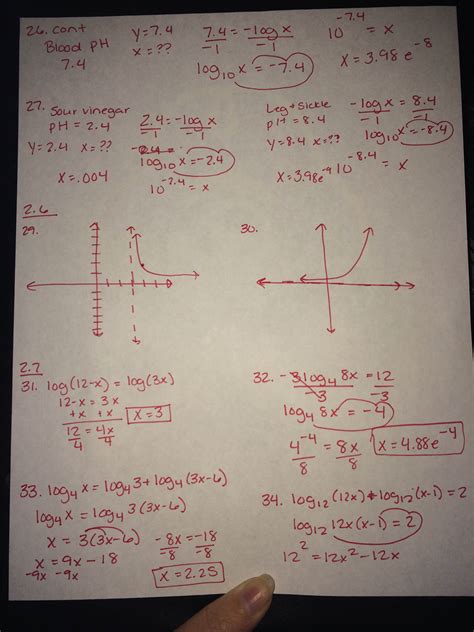 26. cont
Blood pH
7.4
Y=7.4
x=??
7.4 = -log x
-1 -1
log10 x = -7.4
10^-7.4 = x
x = 3.98 e^-8
27. Sour vinegar
pH = 2.4
Y=2.4 x=??
x=.004
2.4 = -log x
-1 -1
-2.4 =
log10 x = -2.4
10^-2.4 = x
pH = 8.4
Y=8.4 x=??
x=3.98e^-9
-log x = 8.4
-1 -1
log10 x = -8.4
10^-8.4 = x
2.6
29.
30.
2.7
31. log(12-x) = log(3x)
12-x = 3x
+x +x
12 = 4x
4 4
x = 3
32. -3log4 8x = 12
-3 -3
log4 8x = -4
4^-4 = 8x
8 8
x = 4.88e^-4
33. log4 x = log4 3 + log4 (3x-6)
log4 x = log4 3(3x-6)
x = 3(3x-6)
x = 9x - 18
-9x -9x
-8x = -18
-8 -8
x = 2.25
34. log12 (12x) + log12 (x-1) = 2
log12 12x(x-1) = 2
12^2 = 12x^2 - 12x